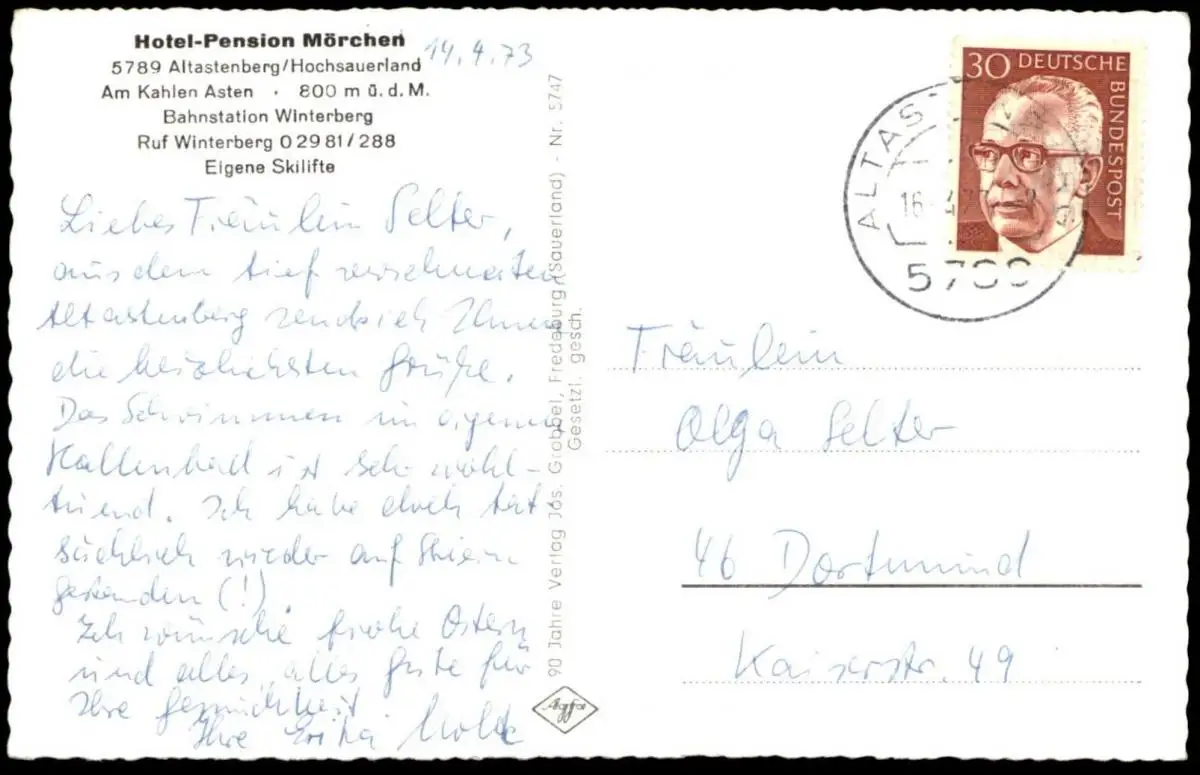 Hotel-Pension Mörchen
5789 Altastenberg/Hochsauerland
Am Kahlen Asten · 800 m ü. d. M.
Bahnstation Winterberg
Ruf Winterberg 0 29 81 / 288
Eigene Skilifte
14.4.73
Liebes Fräulein Selter,
aus dem tief verschneiten
Altastenberg sende ich Ihnen
die herzlichsten Grüße.
Das Schwimmen im eigenen
Hallenbad ist sehr wohl-
tuend. Ich habe doch tat-
sächlich wieder auf Skiern
gestanden (!).
Ich wünsche frohe Ostern
und alles, alles Gute für
Ihre Gesundheit
Ihre Erika
90 Jahre Verlag Jos. Grobbel, Fredeburg (Sauerland) - Nr. 5747
Gesetzl. gesch.
Agfa
30 DEUTSCHE
BUNDESPOST
ALTAS
16
5789
Fräulein
Olga Selter
46 Dortmund
Kaiserstr. 49